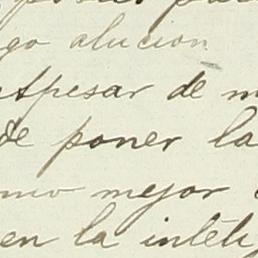 go alucion
Apesar de m
de poner la
mo mejor
en la inteli